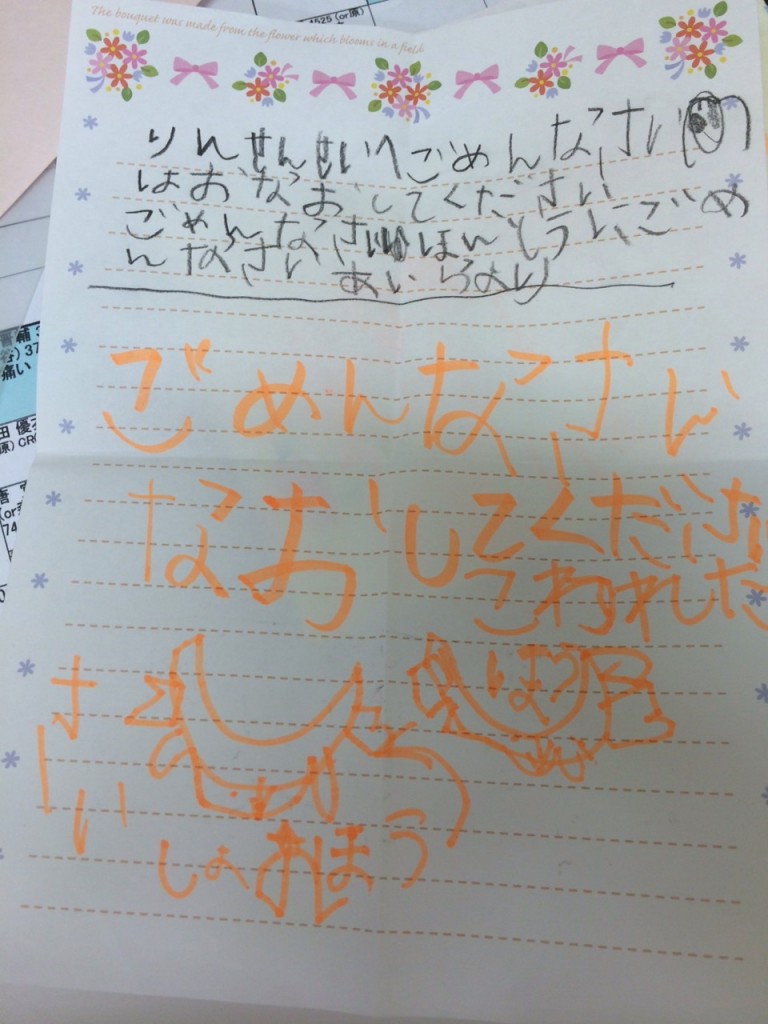 4525 (or原)
The bouquet was made from the flower which blooms in a field
りんせんせいへごめんなさい
はおなおしてください
ごめんなさいほんとうにごめ
んなさい あいらより
ごめんなさい
なおしてください
こわれた
さ
い
しょ
ほう
37
痛い
田 優
原) CR
(or
74